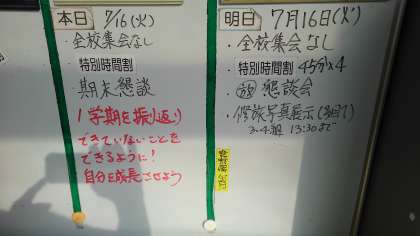 本日 7/16(火)
・全校集会なし
・特別時間割
期末懇談
1学期を振り返り
できていないことを
できるように!
自分を成長させよう
明日 7月16日(火)
・全校集会なし
・特別時間割 45分×4
・放 懇談会
・修旅写真展示(3日目)
3-4組 13:30まで